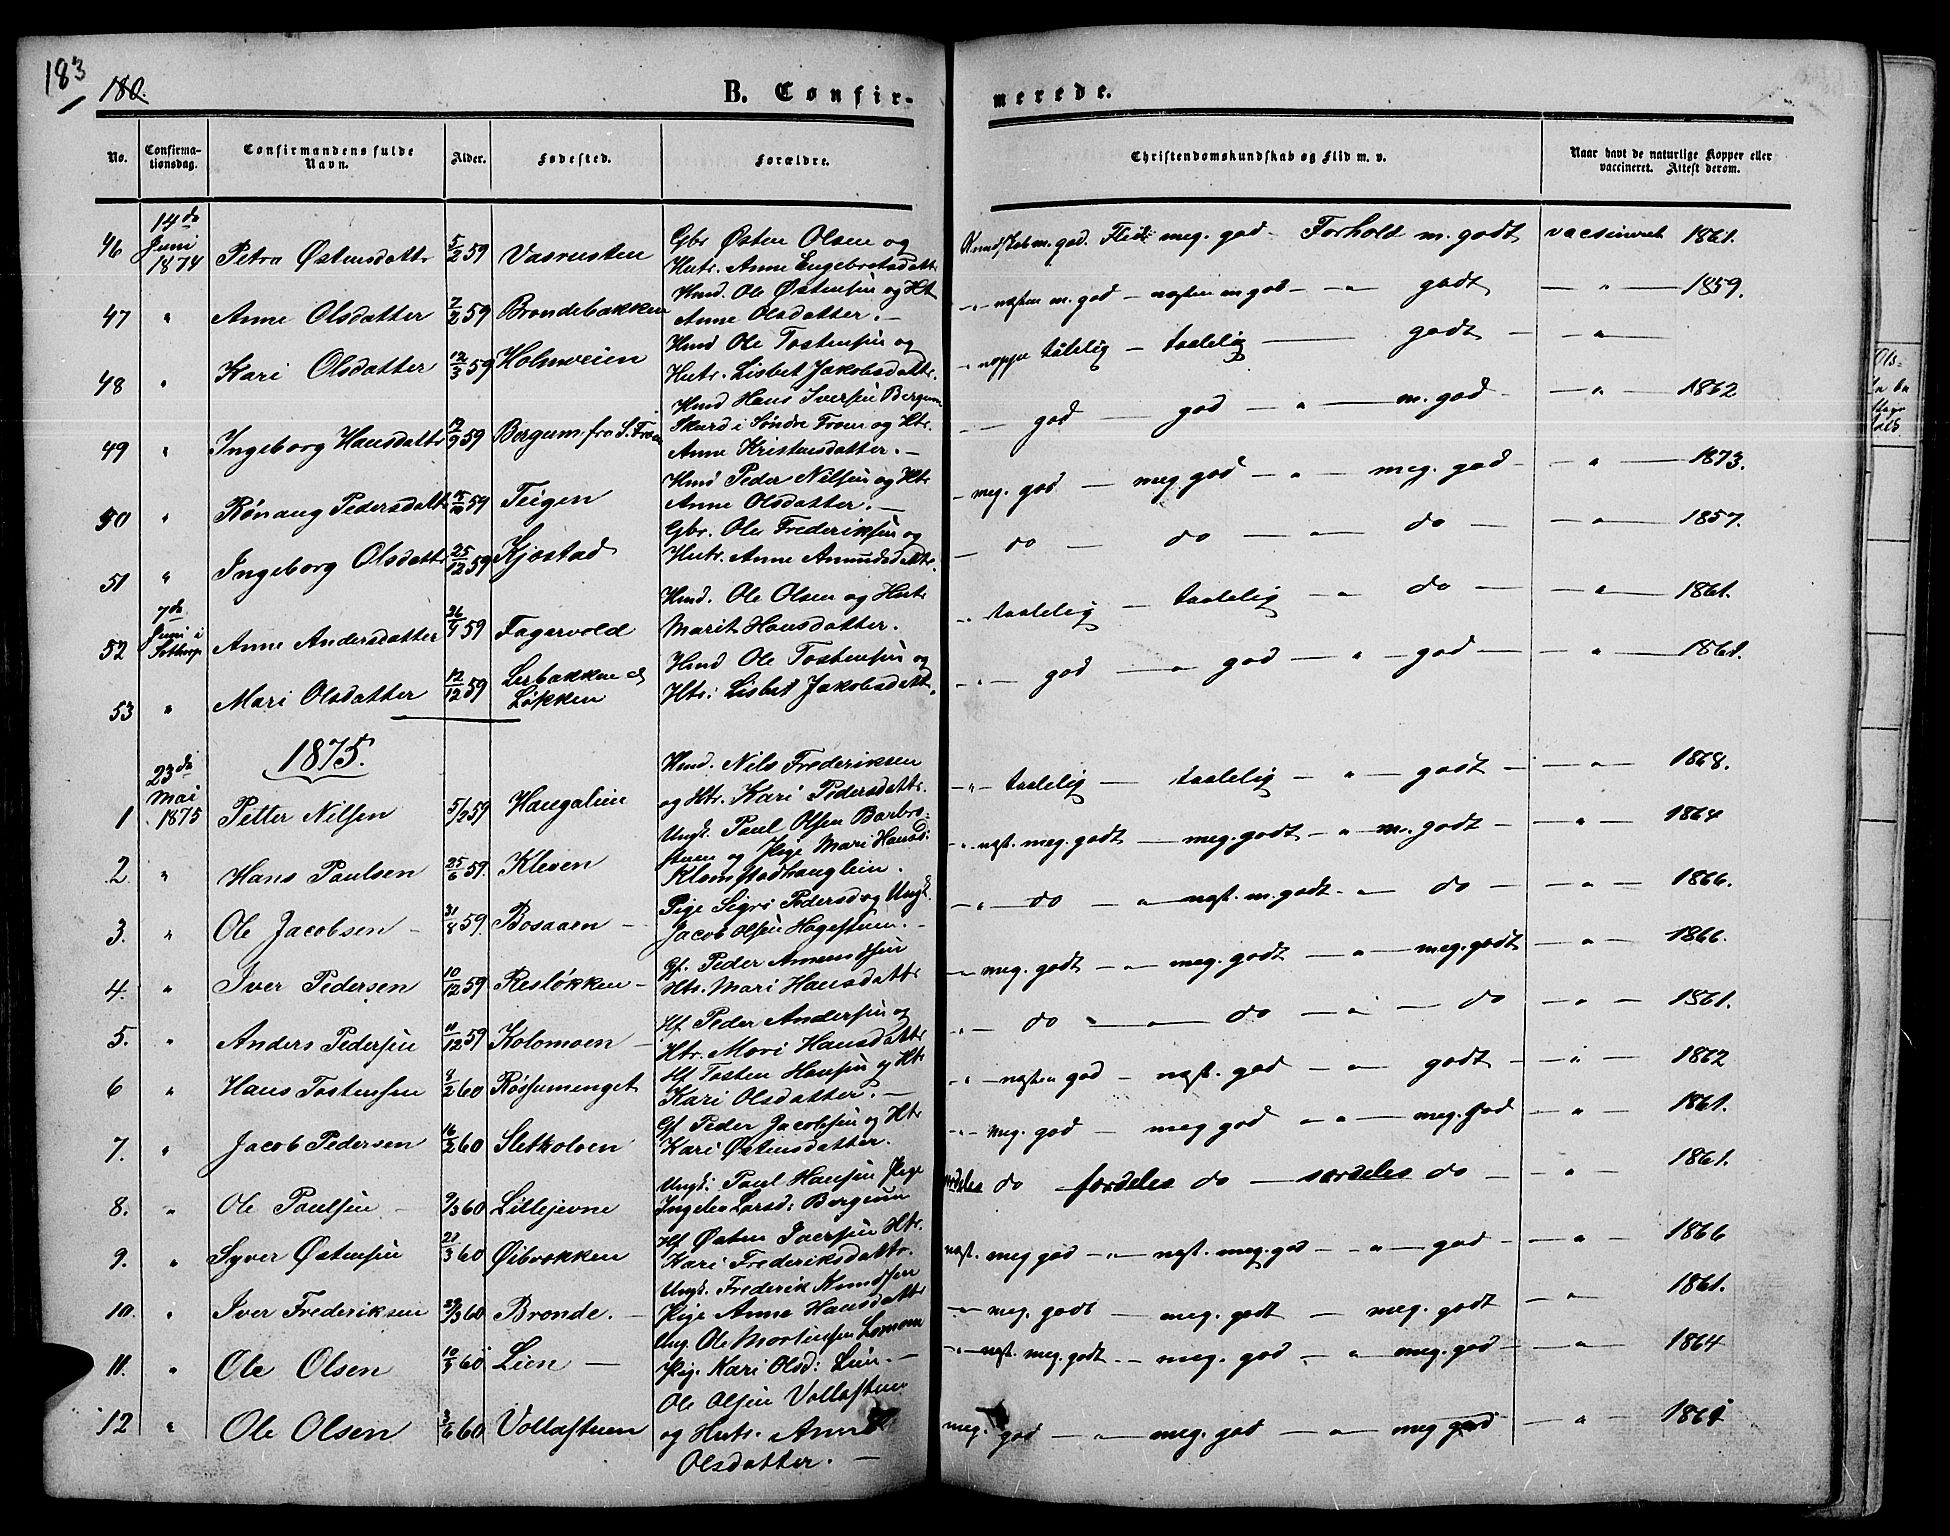 183
180.
B. Confir-
merede.
No.
Confirma-
tionsdag.
Confirmandens fulde
Navn.
Alder.
Fødested.
Forældre.
Christendomskundskab og Flid m. v.
Naar havt de naturlige Kopper eller
vaccineret. Attest derom.
46 14de Juni 1874 Petra Østensdattr 5/2 59 Vasrusten Gbr Østen Olsen og
Hutr. Anne Engebretsdattr
Kundskab m. god. Flid meg. god - Forhold m. godt vaccineret 1861.
47 " Anne Olsdatter 7/2 59 Brondebakken Hmd. Ole Østensen og Ht
Anne Olsdatter. -
- " - næsten m. god - næsten m god - " - godt - " - 1859.
48 " Kari Olsdatter 12/3 59 Holmveien Hmd Ole Tostensen og
Hutr. Lisbet Jakobsdattr.
- " - neppe tålelig - taalelig - godt - "
49 " Ingeborg Hansdattr 12/9 59 Bergum fra S. Fron Hmd Hans Iversen Bergum
Skurd i Søndre Fron og Htr.
Anne Kristensdatter. -
- god - god - " - m. god - " - 1862
50 " Rønaug Pedersdattr 59 Teigen Hmd Peder Nilsen og Htr
Anne Olsdatter. -
- meg. god - meg. god - " - meg. god - " - 1873.
51 " Ingeborg Olsdattr 25/12 59 Kjøstad Gbr. Ole Frederiksen og
Hutr. Anne Amundsdattr.
- do - do - " - do - " - 1857.
52 7de Juni i Anne Andersdatter 59 Fagervold Hmd. Ole Olsen og Hutr
Marit Hansdatter.
- " taalelig - taalelig - " - do - " - 1861.
53 " Mari Olsdatter 12/12 59 Lerbakken
Løkken Hmd Ole Tostensen og
Htr: Lisbet Jakobsdatt.
- " - god - " god - " - god - " - 1861.
1875.
1 23de Mai 1875 Petter Nilsen 59 Haugalien Hmd. Nils Frederiksen
og Htr. Kari Pedersdattr.
- " - taalelig - taalelig - " - godt - " - 1868.
2 " Hans Paulsen 25/6 59. Kleven Ungk. Paul Olsen Barbro-
stuen og Pige Mari Hansd:
Klomstadhauglien.
- " næst. meg. godt - meg. godt - " m. godt - " - 1864
3. " Ole Jacobsen - 31/8 59. Bosaaen - Pige Sigri Pedersd og Ungk.
Jacob Olsen Hagestuen. -
- " - do - " næst. m. godt - " - do - " - 1866.
4. " Iver Pedersen 10/12 59 Resløkken - Gf. Peder Amundsen
Htr. Mari Hansdattr
- " meg. godt - " - meg. godt - " - meg. godt - " - 1866.
5. " Anders Pedersen 11/12 59 Kolomoen - Hf Peder Andersen og
Htr. Mari Hansdattr
- " - do - " - do - " - do - " - 1861.
6 " Hans Tostensen 8/2 60 Røssumenget Hf Tosten Hansen og Ht
Kari Olsdatter. -
- " - næsten god - næst. god - " - godt - " - 1862
7. " Jacob Pedersen 16/2 60 Sletholen Gf Peder Jacobsen og Ht
Kari Østensdatter.
- " - meg. god - meg god - " - meg. god - " - 1861.
8. " Ole Paulsen - 9/3 60 Lillejevne Ungk: Paul Hansen Pige
Ingeleu Larsd: Bergum
særdeles do særdeles do - særdeles do - " - 1861.
9. " Syver Østensen 21/3 60 Øibrekken Hf Østen Iversen Htr.
Kari Frederiksdattr.
næst. meg god - " - næst. meg. god - " - god - " - 1866
10. " Iver Frederiksen 29/3 60 Bronde. - Ungk. Frederik Knudsen
Pige Anne Hansdattr
- " meg. godt - meg. godt - meg. godt - " - 1861.
11. " Ole Olsen 10/5 60 Lien - Ung. Ole Mortensen Lomoen
Pig. Kari Olsd: Lien. -
- " næst. meg. godt - meg. god - " - meg. god - " - 1864
12 " Ole Olsen 3/6 60 Vollastuen Ole Olsen Vollastuen
og Hutr. Anne
Olsdatter. -
meg. god - " - meg. god - " - meg god - " - 1864